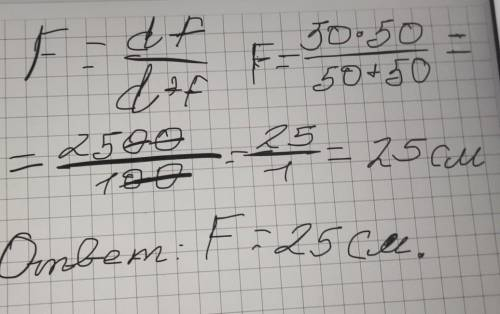 F = df/d+f F = 50·50/50+50 =
= 2500/100 = 25/1 = 25 см
Ответ: F = 25 см.